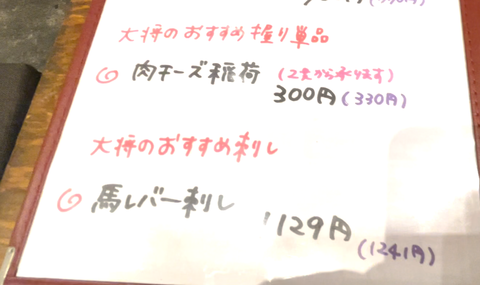 大将のおすすめ握り単品
肉チーズ稲荷 (2貫から承ります)
300円(330円)
大将のおすすめ刺し
馬レバー刺し
1129円
(1241円)